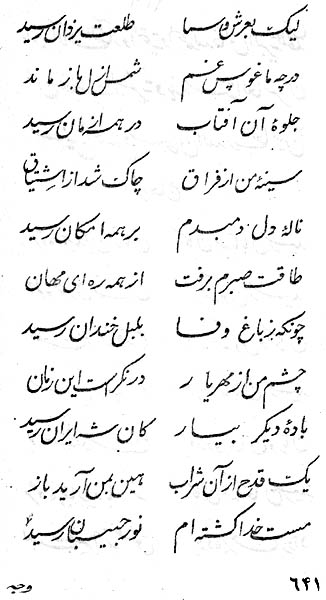 لیک بعرش و سما طلعت یزدان رسید
درچه ما غوص غم شمس ازل باز ماند
جلوهٔ آن آفتاب در همه ازمان رسید
سینهٔ من از فراق چاک شد از اشتیاق
نالهٔ دل دمبدم بر همه امکان رسید
طاقت صبرم برفت از همه ره ای مهان
چونکه ز باغ وفا بلبل خندان رسید
چشم من از مهر یار درنگر است این زمان
بادهٔ دیگر بیار کان شه ایران رسید
یک قدح از آن شراب هین بمن آرید باز
مست خدا گشته ام نور حبیبان رسید
۶۴۱ وجه